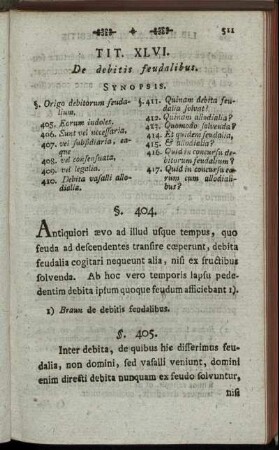 511
TIT. XLVI.
De debitis feudalibus.
SYNOPSIS.
§. Origo debitorum feuda-
lium.
405. Eorum indoles.
406. Sunt vel necessaria.
407. vel subsidiaria, ea-
que
408. vel consensuata,
409. vel legalia.
410. Debita vasalli allo-
dialia.
§. 411. Quinam debita feu-
dalia solvent?
412. Quinam allodialia?
413. Quomodo solvenda?
414. Et quidem feudalia,
415. & allodialia?
416. Quid in concursu de-
bitorum feudalium?
417. Quid in concursu eo-
rum cum allodiali-
bus?
§. 404.
Antiquiori ævo ad illud usque tempus, quo
feuda ad descendentes transire cœperunt, debita
feudalia cogitari nequeunt alia, nisi ex fructibus
solvenda. Ab hoc vero temporis lapsu pede-
dentim debita ipsum quoque feudum afficiebant 1).
1) Braun de debitis feodalibus.
§. 405.
Inter debita, de quibus hic disserimus feu-
dalia, non domini, sed vasalli veniunt, domini
enim directi debita nunquam ex feudo solvuntur,
nisi